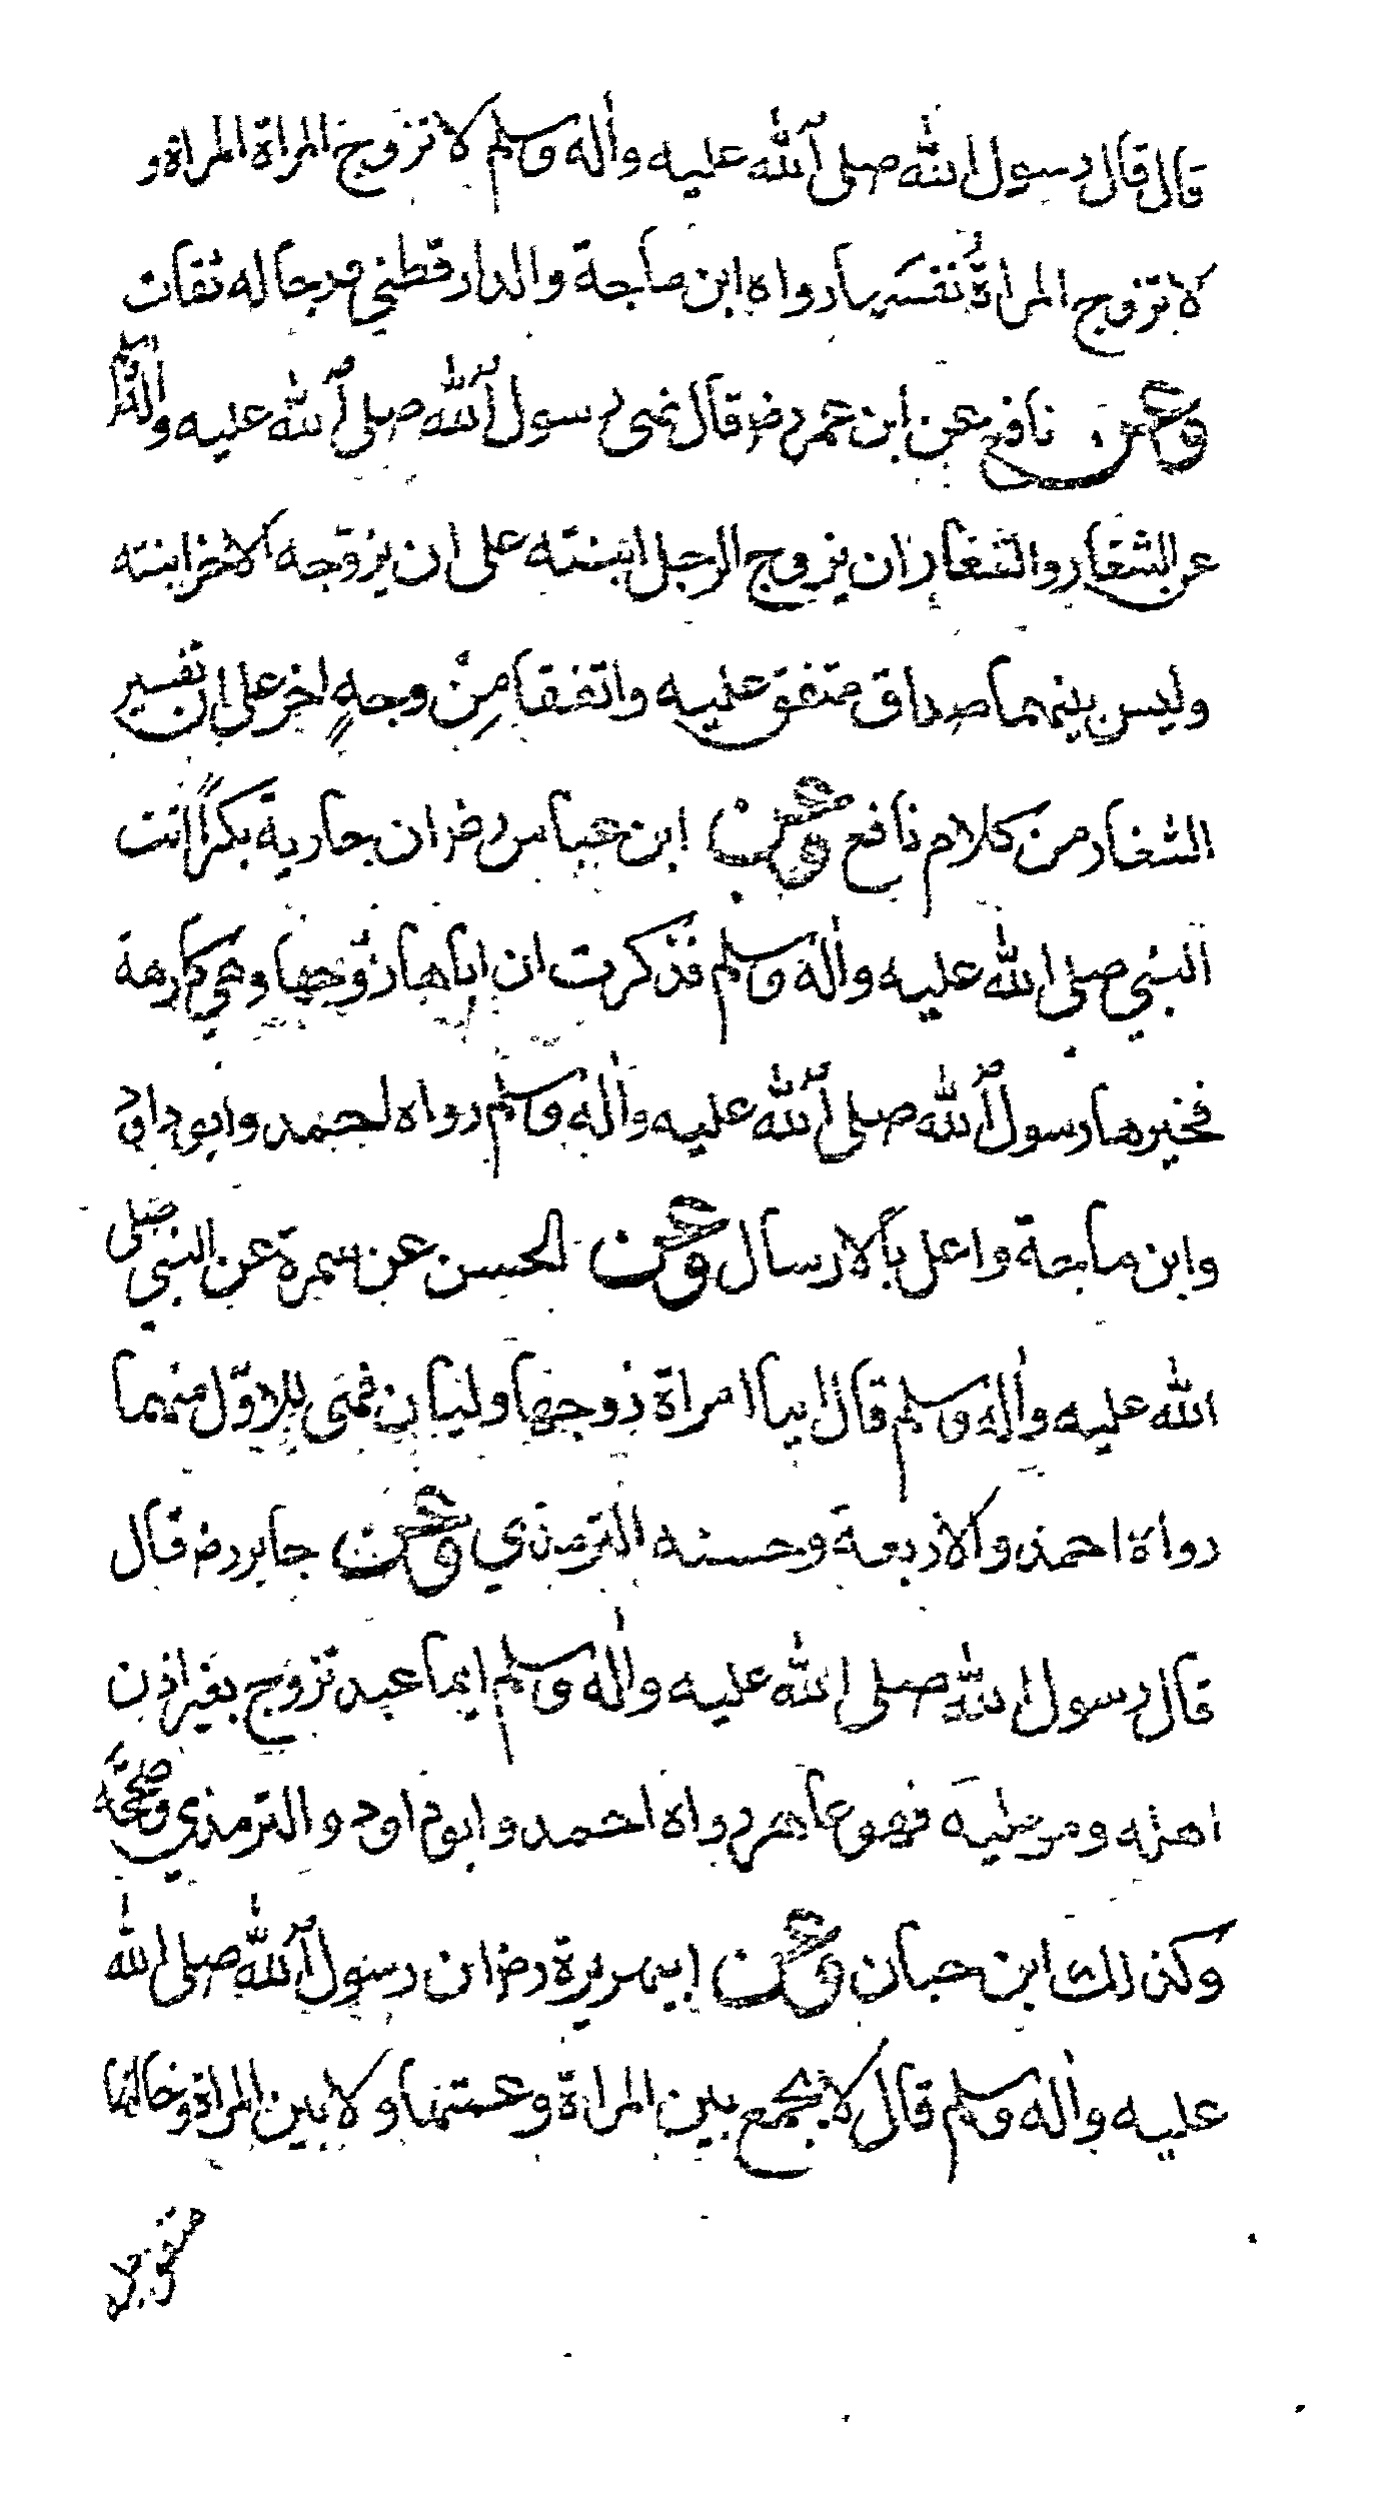 قال قال رسول الله صلى الله عليه واله وسلم لا تزوج المراة المراة و
لا تزوج المراة نفسها رواه ابن ماجة والدارقطني ورجاله ثقات
وعن نافع عن ابن عمر رض قال نهى رسول الله صلى الله عليه واله وسلم
عن الشغار والشغار ان يزوج الرجل ابنته على ان يزوجه الاخر ابنته
وليس بينهما صداق متفق عليه واتفقا مِنْ وجهٍ اخر على ان تفسير
الشغار من كلام نافع وعن ابن عباس رض ان جارية بكراً اتت
النبي صلى الله عليه واله وسلم فذكرت ان اباها زوجها وهي كارهة
فخيرها رسول الله صلى الله عليه واله وسلم رواه احمد وابوداؤد
وابن ماجة واعل بالارسال وعن الحسن عن سمرة عن النبي صلى
الله عليه واله وسلم قال ايما امراة زوجها وليان فهى للاوّل منهما
رواه احمد والاربعة وحسنه الترمذي وعن جابر رض قال
قال رسول الله صلى الله عليه واله وسلم ايما عبد تزوج بغير اذن
اهله ومواليه فهو عاهر رواه احمد وابوداود والترمذي وصححه
وكذلك ابن حبان وعن ابي هريرة رض ان رسول الله صلى الله
عليه واله وسلم قال لا يجمع بين المراة وعمتها ولا بين المراة وخالتها
متفق